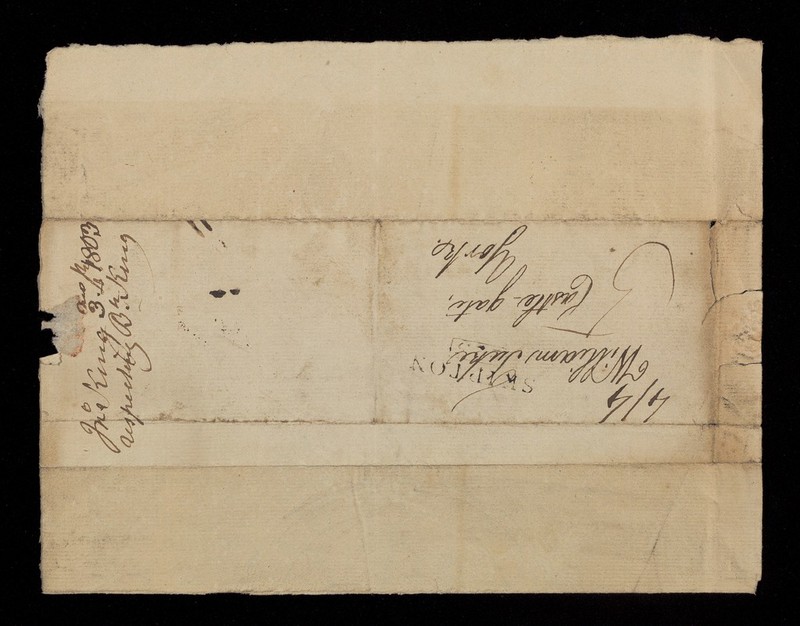 William Tuke
Castle-gate,
York.
SKIPTON
Jno King 3 1803
respecting King